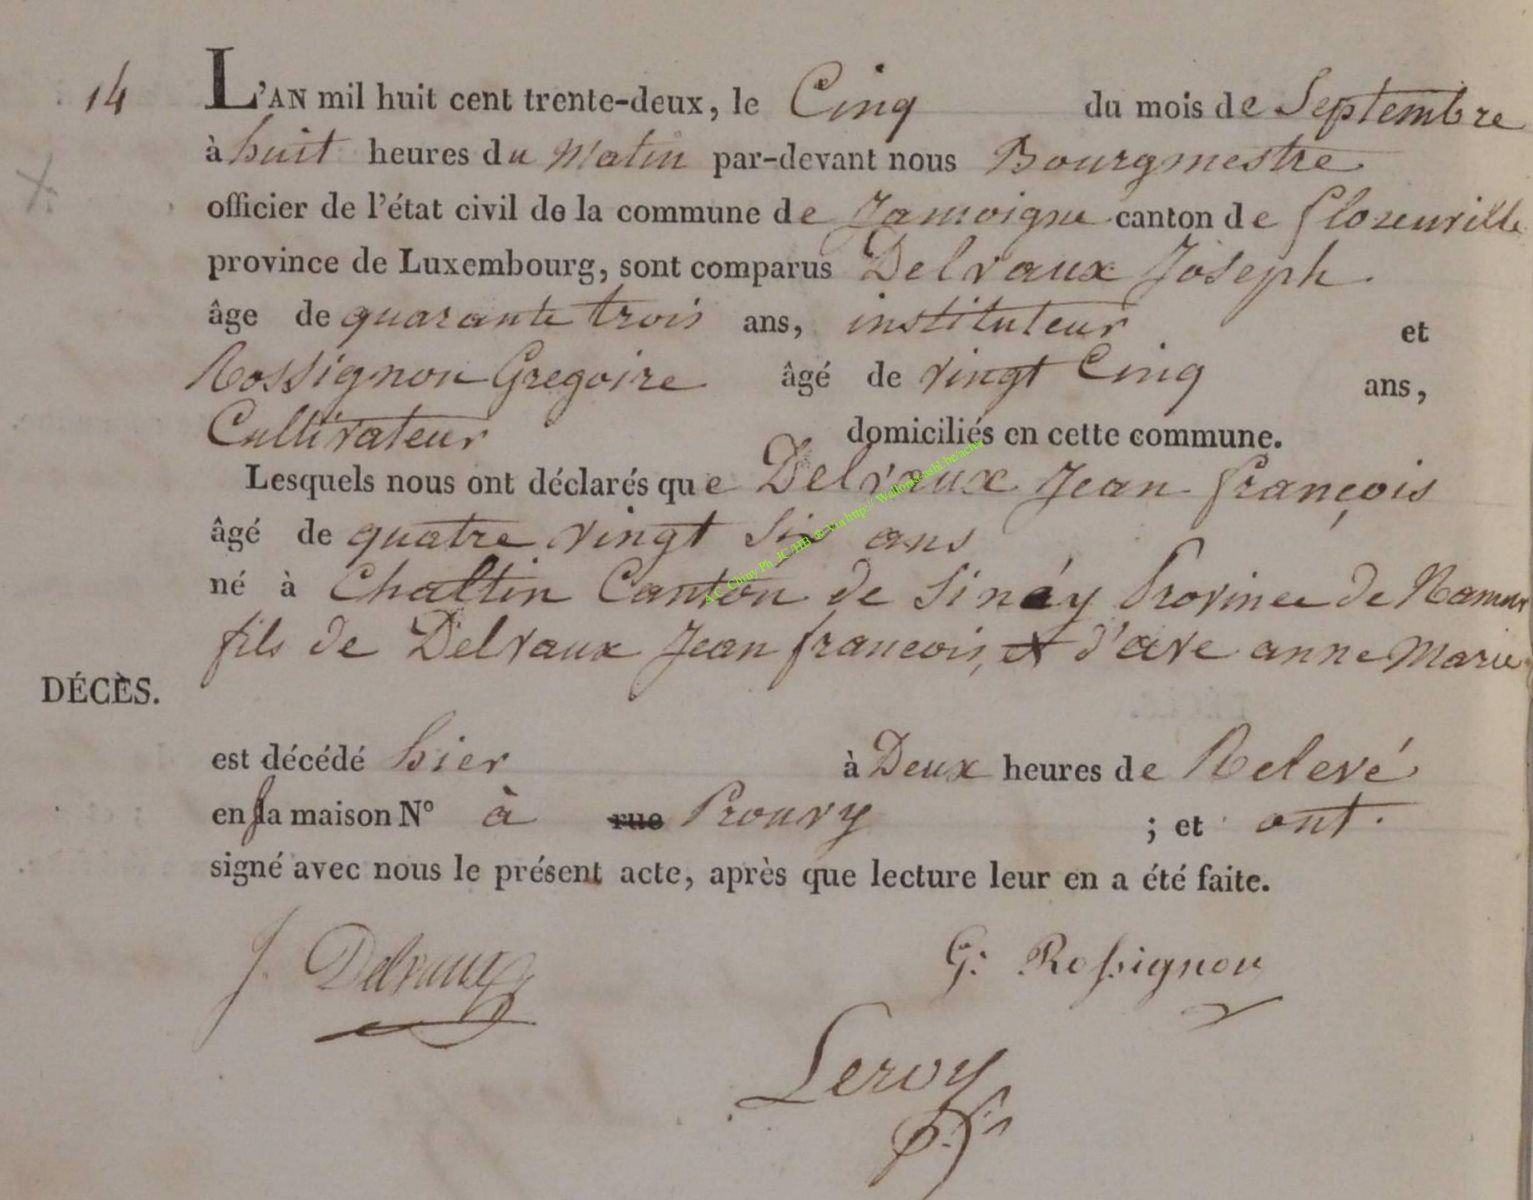 14
L'AN mil huit cent trente-deux, le Cinq du mois de Septembre
à huit heures du Matin par-devant nous Bourgmestre
officier de l'état civil de la commune de Jamoigne canton de florenville
province de Luxembourg, sont comparus Delvaux Joseph
âge de quarante trois ans, instituteur et
Rossignon Gregoire âgé de vingt Cinq ans,
Cultivateur domiciliés en cette commune.
Lesquels nous ont déclarés que Delvaux Jean françois
âgé de quatre vingt Six ans
né à Chaltin Canton de Sinéy Province de Namur
fils de Delvaux Jean francois, et d'ave anne Marie
DÉCÈS.
est décédé hier à Deux heures de Relevé
en sa maison N° à rue Prouvy ; et ont
signé avec nous le présent acte, après que lecture leur en a été faite.
J. Delvaux
G: Rossignon
Leroy